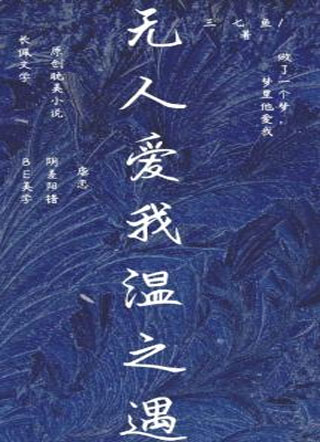 无人爱我温之遇
三七鱼/
著
做了一个梦，
梦里他爱我
长佩文学
原创耽美小说
虐恋
阴差阳错
BE美学